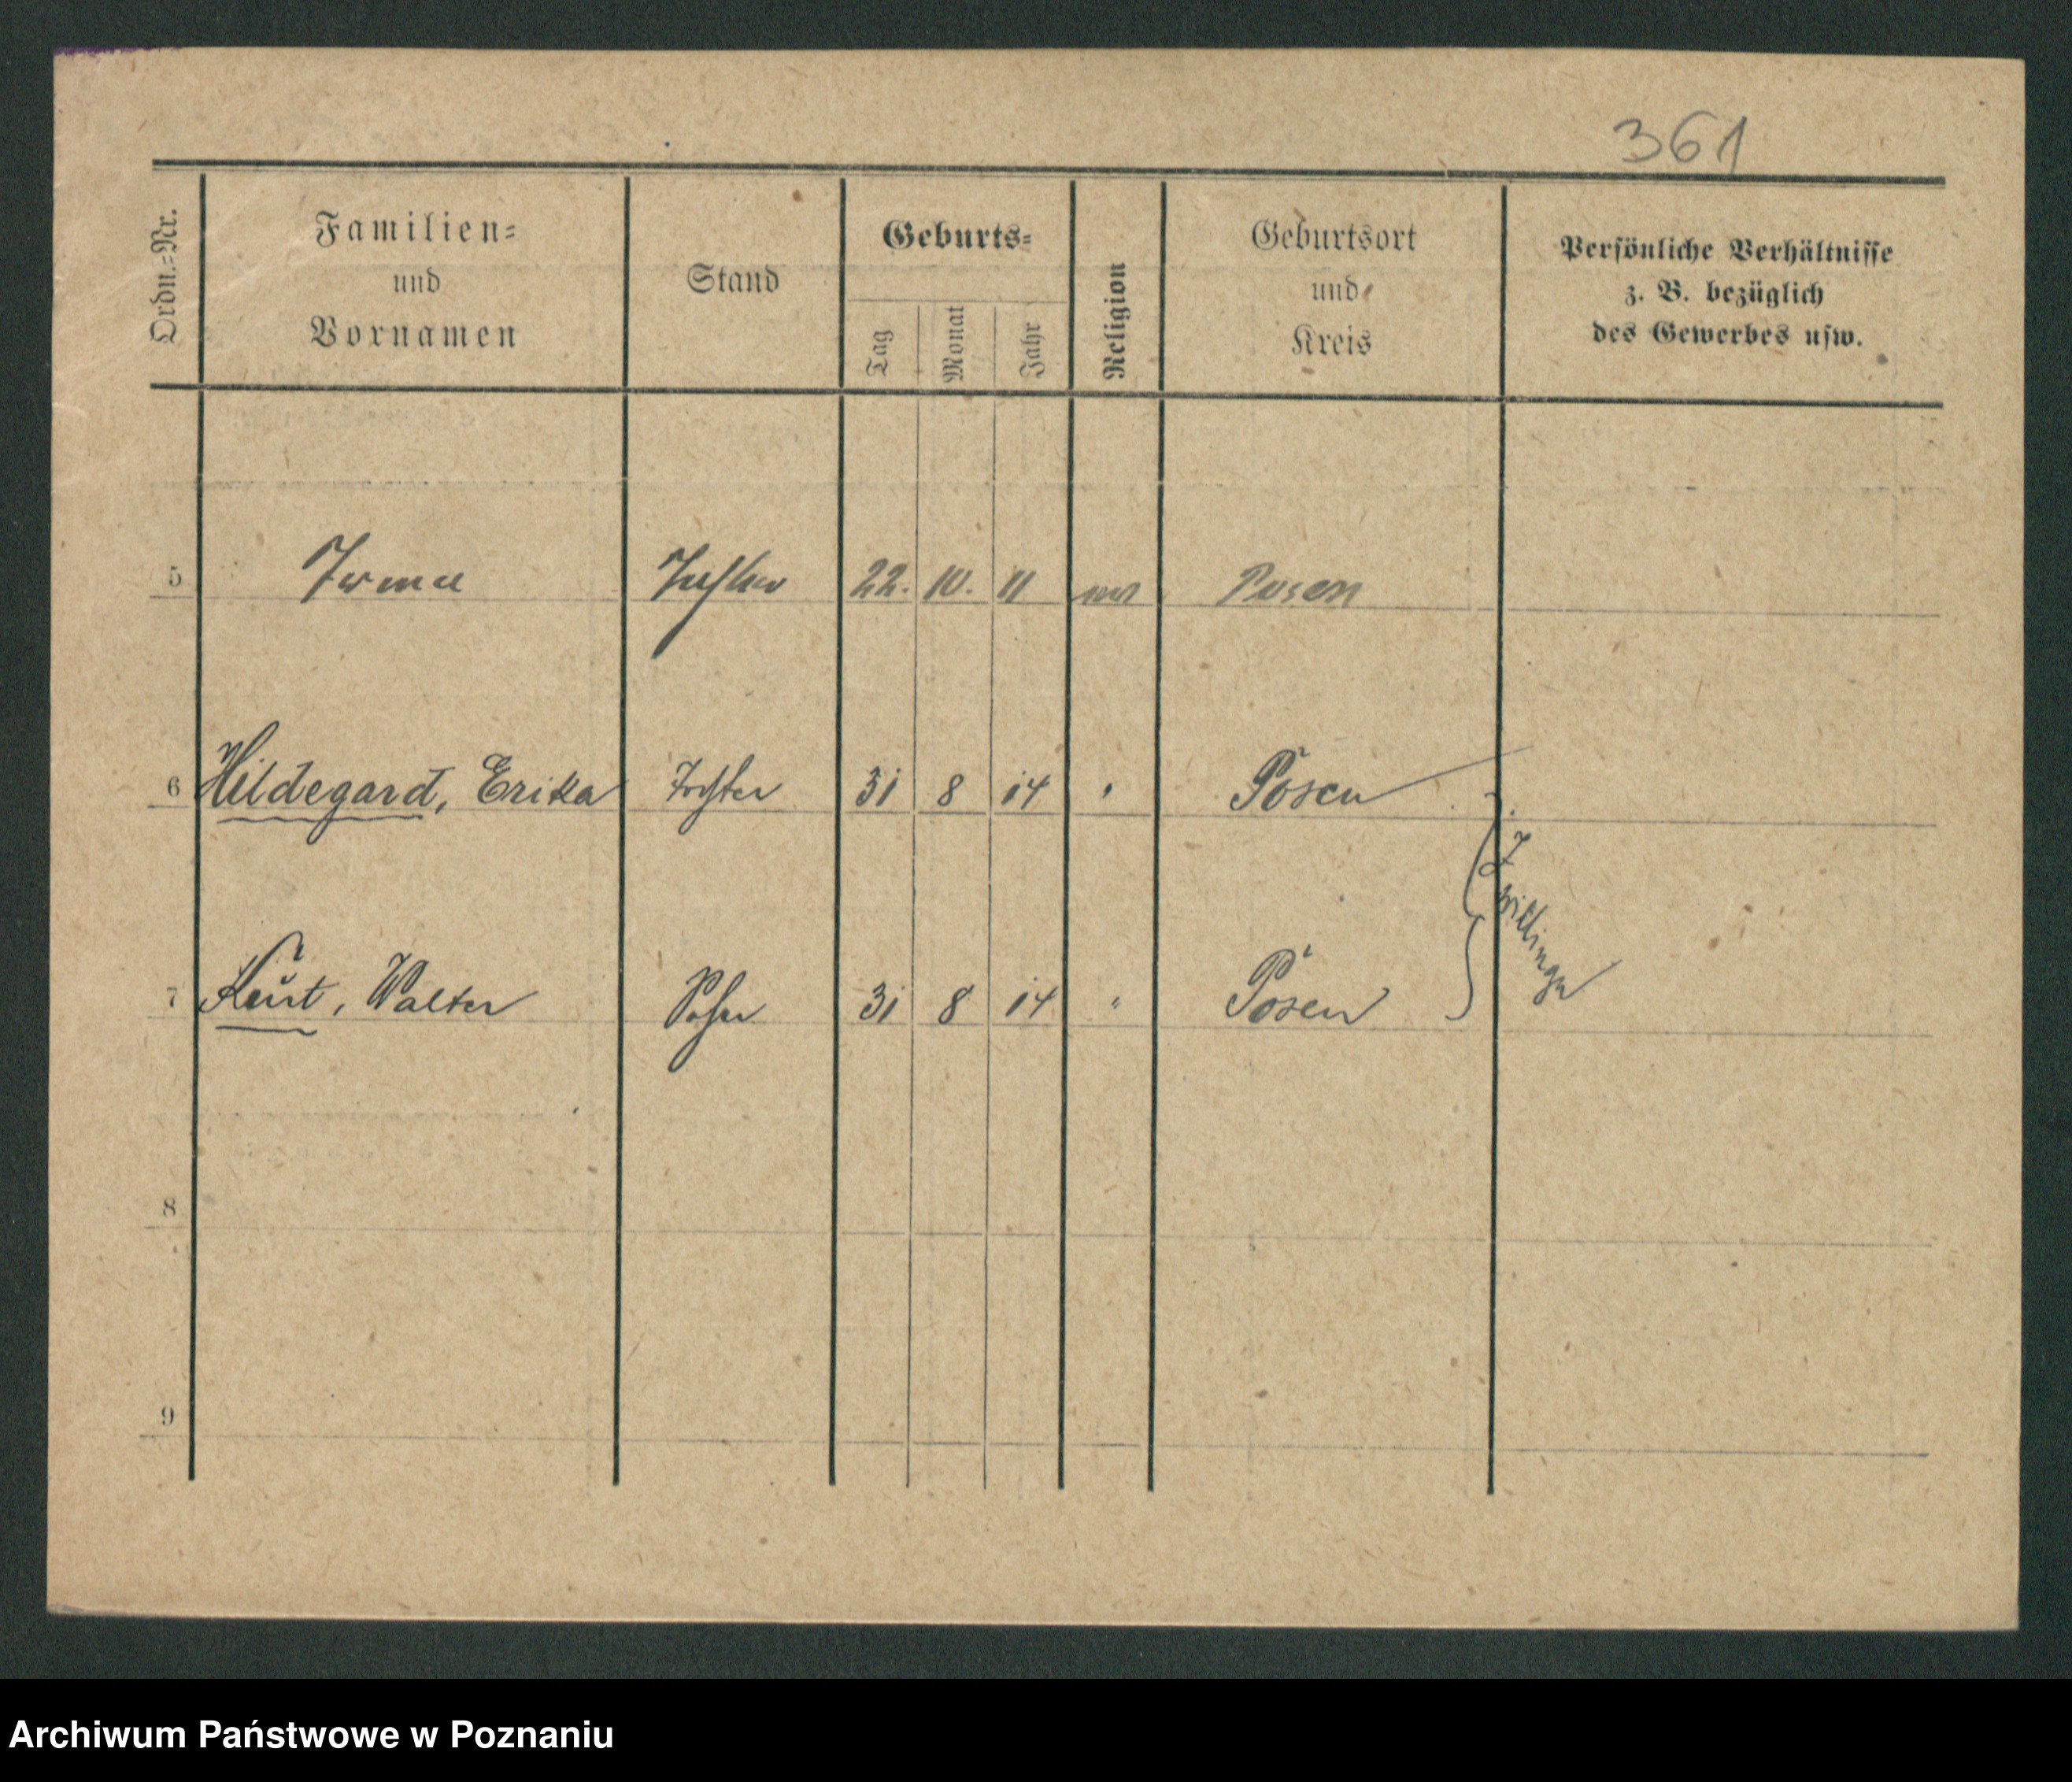 361
Ordn.=Nr.
Familien=
und
Vornamen
Stand
Geburts=
Tag
Monat
Jahr
Religion
Geburtsort
und
Kreis
Persönliche Verhältnisse
z. B. bezüglich
des Gewerbes usw.
5 Irma Tochter 22. 10. 11 Posen
6 Hildegard, Erika Tochter 31 8 14 " Posen
Zwillinge
7 Kurt, Walter Sohn 31 8 14 " Posen
8
9
Archiwum Państwowe w Poznaniu